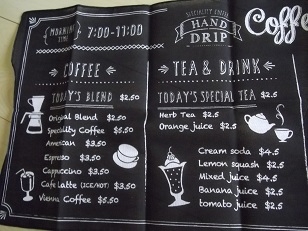 MORNING TIME 7:00-11:00
SPECIALITY COFFEE
HAND DRIP
Coffe
COFFEE
TODAY'S BLEND $2.50
Original Blend $2.50
Speciality Coffee $5.50
American $3.50
Espresso $3.50
Cappuccino $3.50
Cafe Latte (ICE/HOT) $3.50
Vienna Coffee $5.50
TEA & DRINK
TODAY'S SPECIAL TEA $2.5
Herb Tea $2.5
Orange juice $2.5
Cream soda $4.5
Lemon squash $2.5
Mixed juice $4.5
Banana juice $2.5
tomato juice $2.5